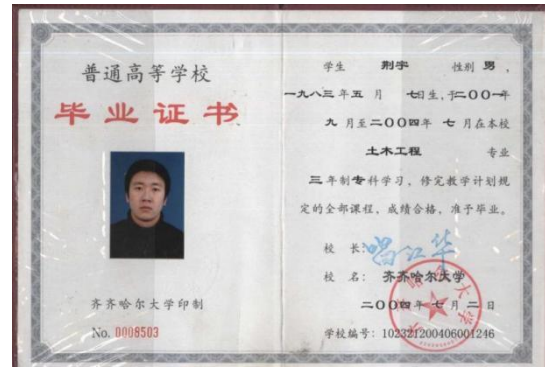 普通高等学校
毕业证书
齐齐哈尔大学印制
No. 0008503
学生 荆宇 性别 男、
一九八三年五月 七日生,于二〇〇一年
九月至二〇〇四年七月在本校
土木工程 专业
三年制专科学习,修完教学计划规
定的全部课程,成绩合格,准予毕业。
校长:
校名:齐齐哈尔大学
二〇〇四年七月二日
学校编号:102321200406001246